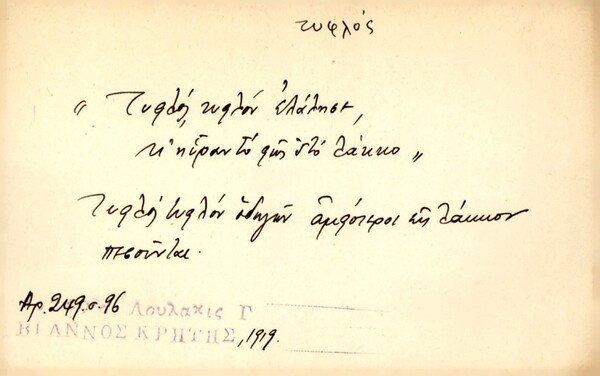 τυφλός
" Τυφλός τυφλόν ἐλάλησε,
κ' ηὗραν τό φῶς 'ς τό λάκκο "
Τυφλός τυφλόν ὁδηγῶν ἀμφότεροι εἰς λάκκον
πεσοῦνται.
Αρ. 249. σ. 96 Λουλακις Γ
ΒΙΑΝΝΟΣ ΚΡΗΤΗΣ, 1919.